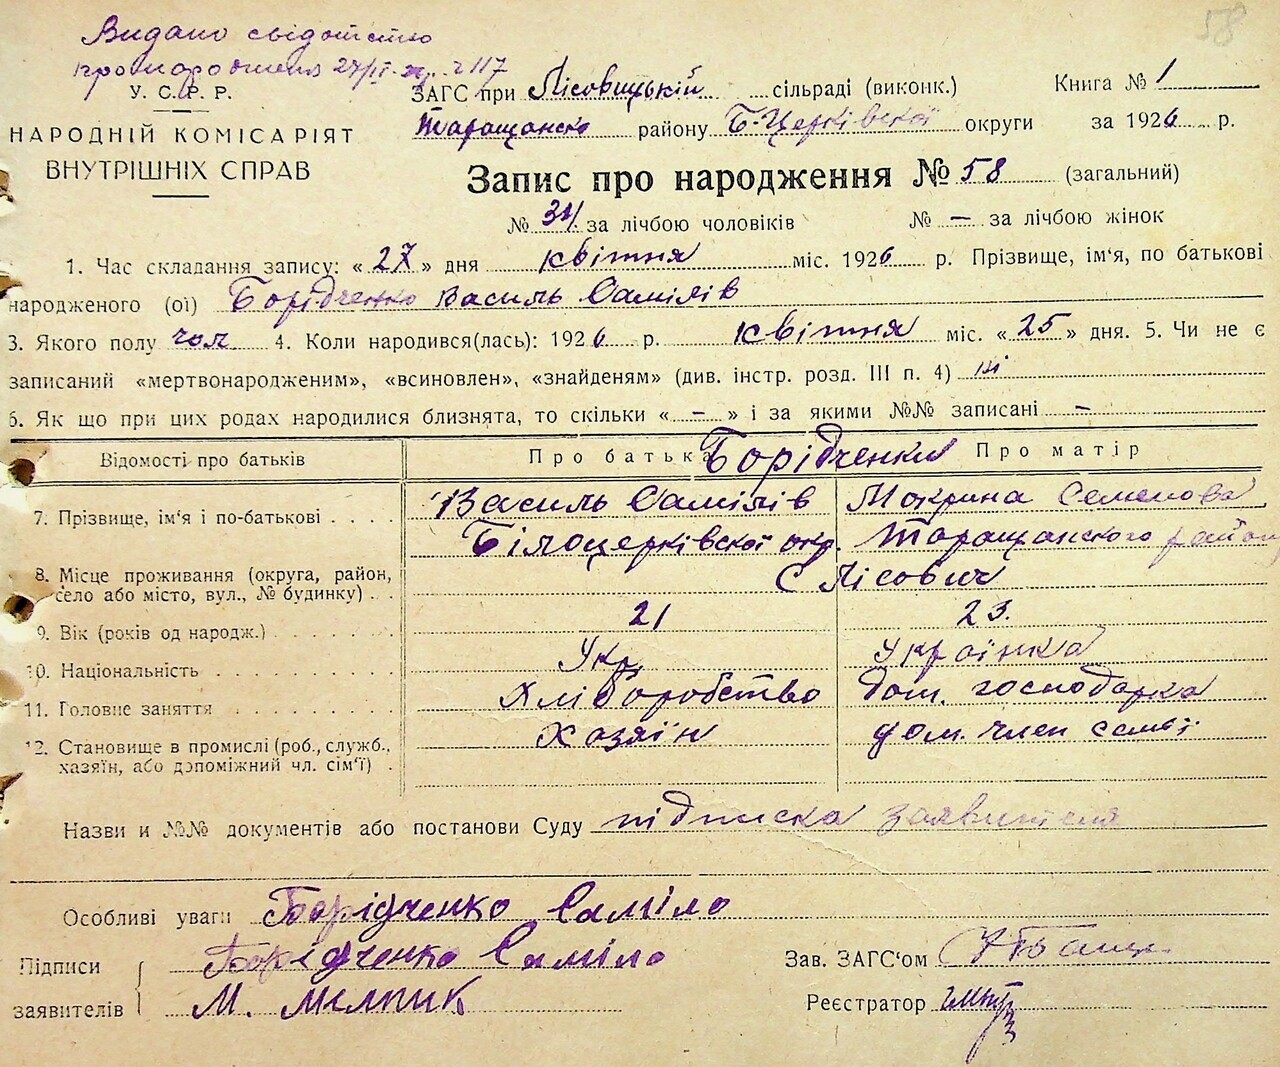 58
Видано свідотство
про народження 27/IV 26 р. № 117
У. С. Р. Р.
НАРОДНІЙ КОМІСАРІЯТ
ВНУТРІШНІХ СПРАВ
ЗАГС при Лісовицькій сільраді (виконк.) Книга № 1
Таращансько району Б-Церківської округи за 1926 р.
Запис про народження № 58 (загальний)
№ 34 за лічбою чоловіків № — за лічбою жінок
1. Час складання запису: «27» дня квітня міс. 1926 р. Прізвище, ім'я, по батькові
народженого (ої) Борідченко Василь Самілів
3. Якого полу чол 4. Коли народився(лась): 1926 р. квітня міс. «25» дня. 5. Чи не є
записаний «мертвонародженим», «всиновлен», «знайденям» (див. інстр. розд. III п. 4) ні
6. Як що при цих родах народилися близнята, то скільки «–» і за якими №№ записані –
Відомості про батьків Про батька Борідченки Про матір
7. Прізвище, ім'я і по-батькові Василь Самілів Мокрина Семенова
Білоцерківської окр. Таращанского району
8. Місце проживання (округа, район,
село або місто, вул., № будинку) С Лісович
9. Вік (років од народж.) 21 23.
10. Національність Укр. Українка
11. Головне заняття Хліборобство дом. господарка
12. Становище в промислі (роб., служб.,
хазяїн, або допоміжний чл. сім'ї) Хозяїн дом. член семьї
Назви и №№ документів або постанови Суду підписка заявителя
Особливі уваги Борідченко Саміло
Підписи
заявителів
Борідченко Саміло
М. Мельник
Зав. ЗАГС'ом
Реєстратор